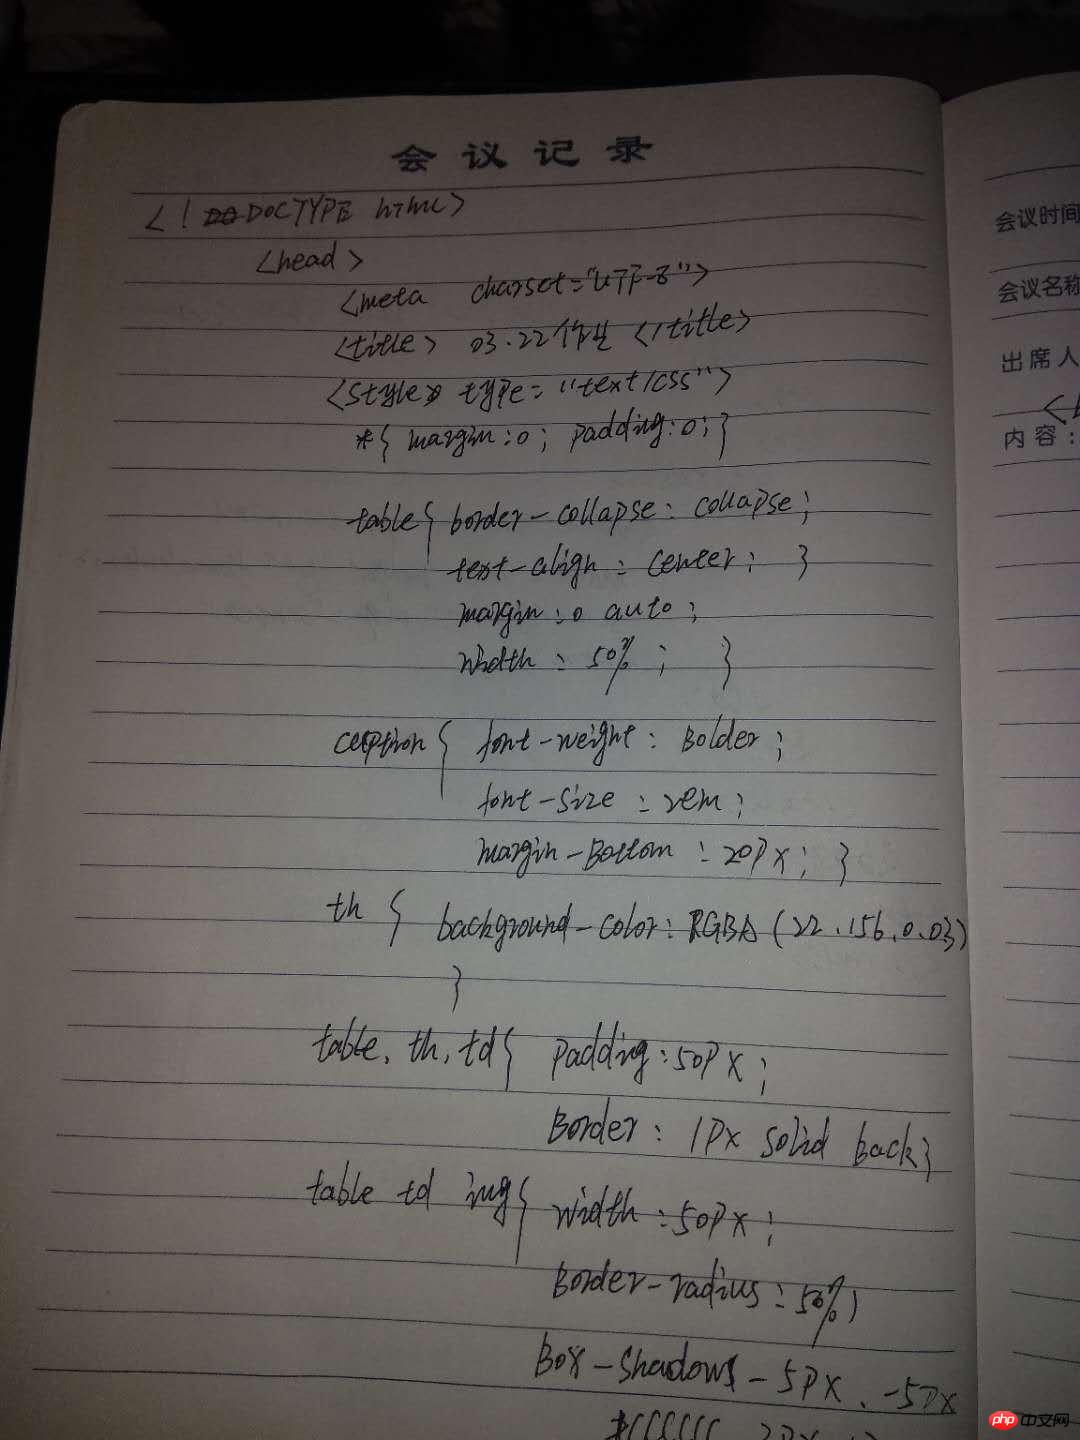 会议记录
<! DOCTYPE html>
<head>
<meta charset="UTF-8">
<title> 03.22作业 </title>
<style type="text/css">
*{ margin:0; padding:0;}
table{ border-collapse: collapse;
text-align: center; }
margin:0 auto;
width: 50%; }
caption{ font-weight: Bolder;
font-size: 2em;
margin-Bottom: 20px; }
th { background-color: RGBA(22.156.0.03)
}
table, th, td{ padding:50px;
Border: 1px solid back}
table td img{ width:50px;
Border-radius: 50%;
Box-shadows -5px, -5px
会议时间
会议名称
出席人
内容:
php 中文网